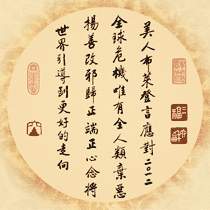 美人布萊登言應對二〇一二
全球危機唯有全人類棄惡
揚善改邪歸正端正心念將
世界引導到更好的走向